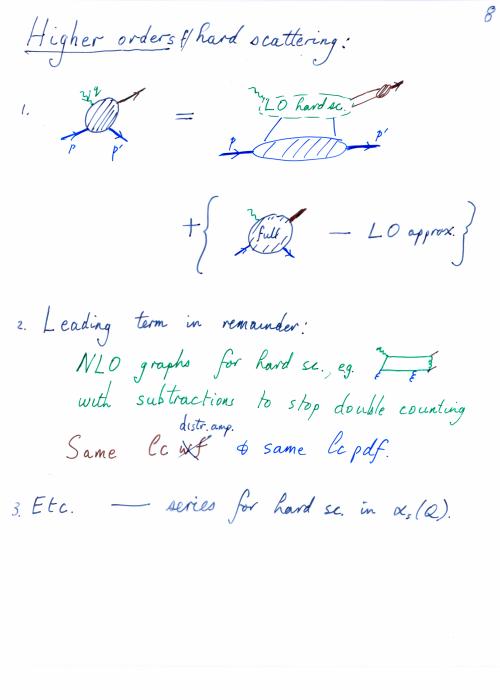 8
Higher orders of hard scattering:
1.
q
p
p'
=
LO hard sc.
p
p'
+ { full — LO approx. }
2. Leading term in remainder:
NLO graphs for hard sc., eg.
with subtractions to stop double counting
distr. amp.
Same lc wf & same lc pdf.
3. Etc. — series for hard sc. in αs(Q).